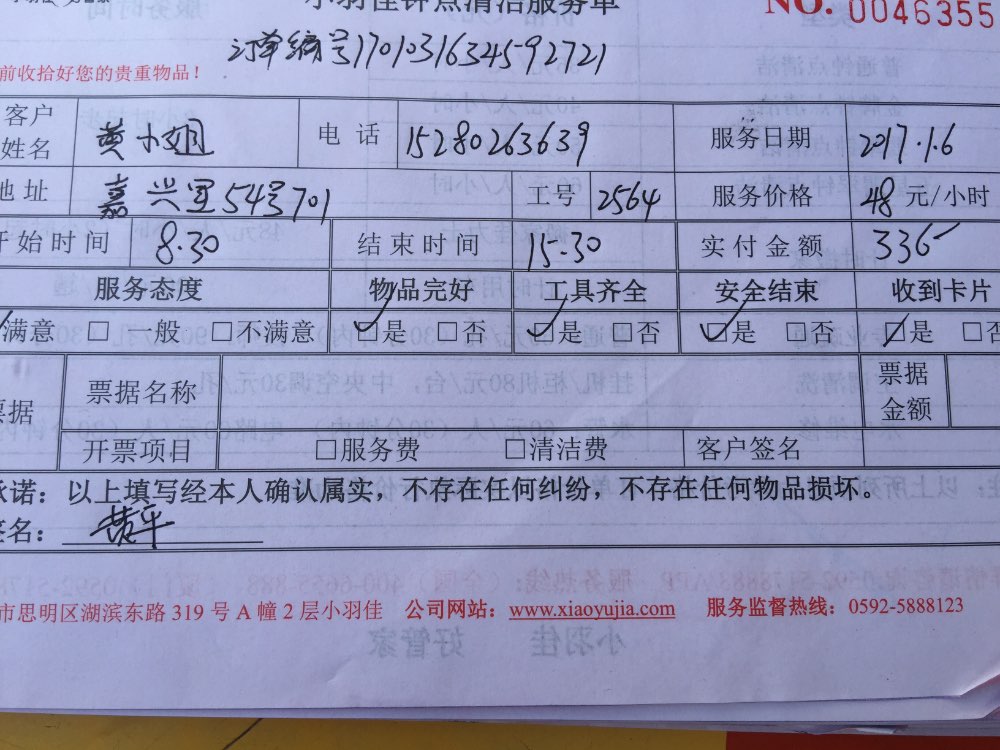 小羽佳钟点清洁服务单
NO. 0046355
订单编号1701031634592721
前收拾好您的贵重物品！
客户姓名 黄小姐 电话 15280263639 服务日期 2017.1.6
地址 嘉兴里54号701 工号 2564 服务价格 48 元/小时
开始时间 8.30 结束时间 15-30 实付金额 336
服务态度 物品完好 工具齐全 安全结束 收到卡片
满意 □ 一般 □不满意 □是 □否 □是 □否 □是 □否 □是 □否
票据 票据名称 票据金额
开票项目 □服务费 □清洁费 客户签名
承诺：以上填写经本人确认属实，不存在任何纠纷，不存在任何物品损坏。
签名：
市思明区湖滨东路 319 号 A 幢 2 层小羽佳 公司网站：www.xiaoyujia.com 服务监督热线：0592-5888123